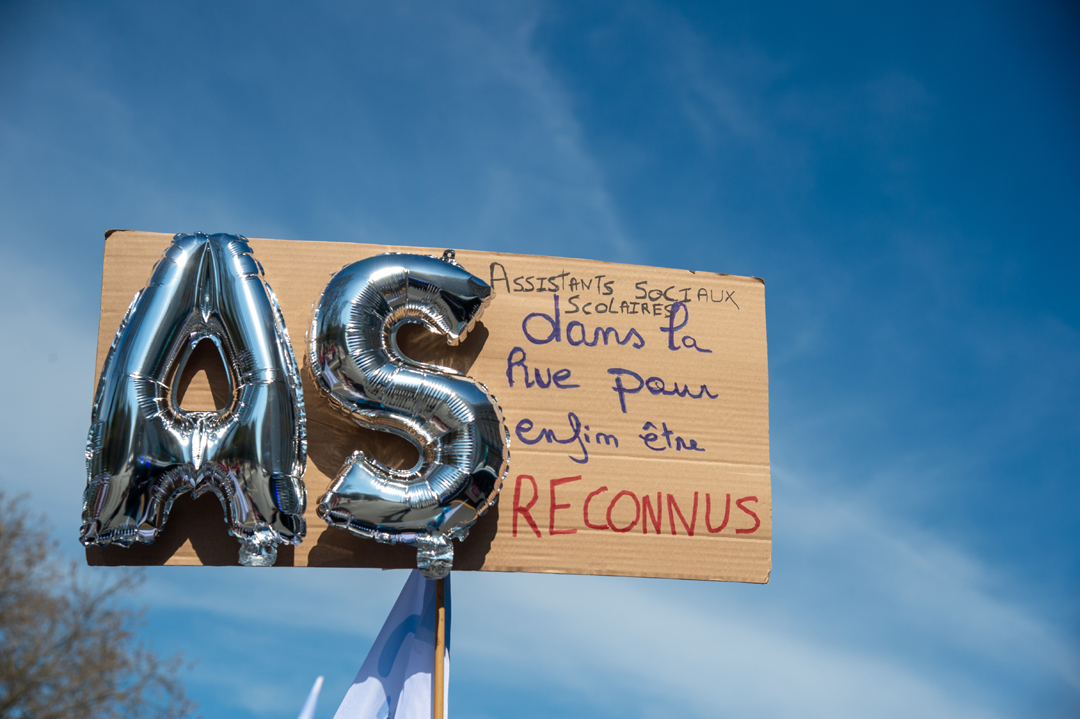 AS
ASSISTANTS SOCIAUX
SCOLAIRES
dans la
Rue pour
enfin être
RECONNUS